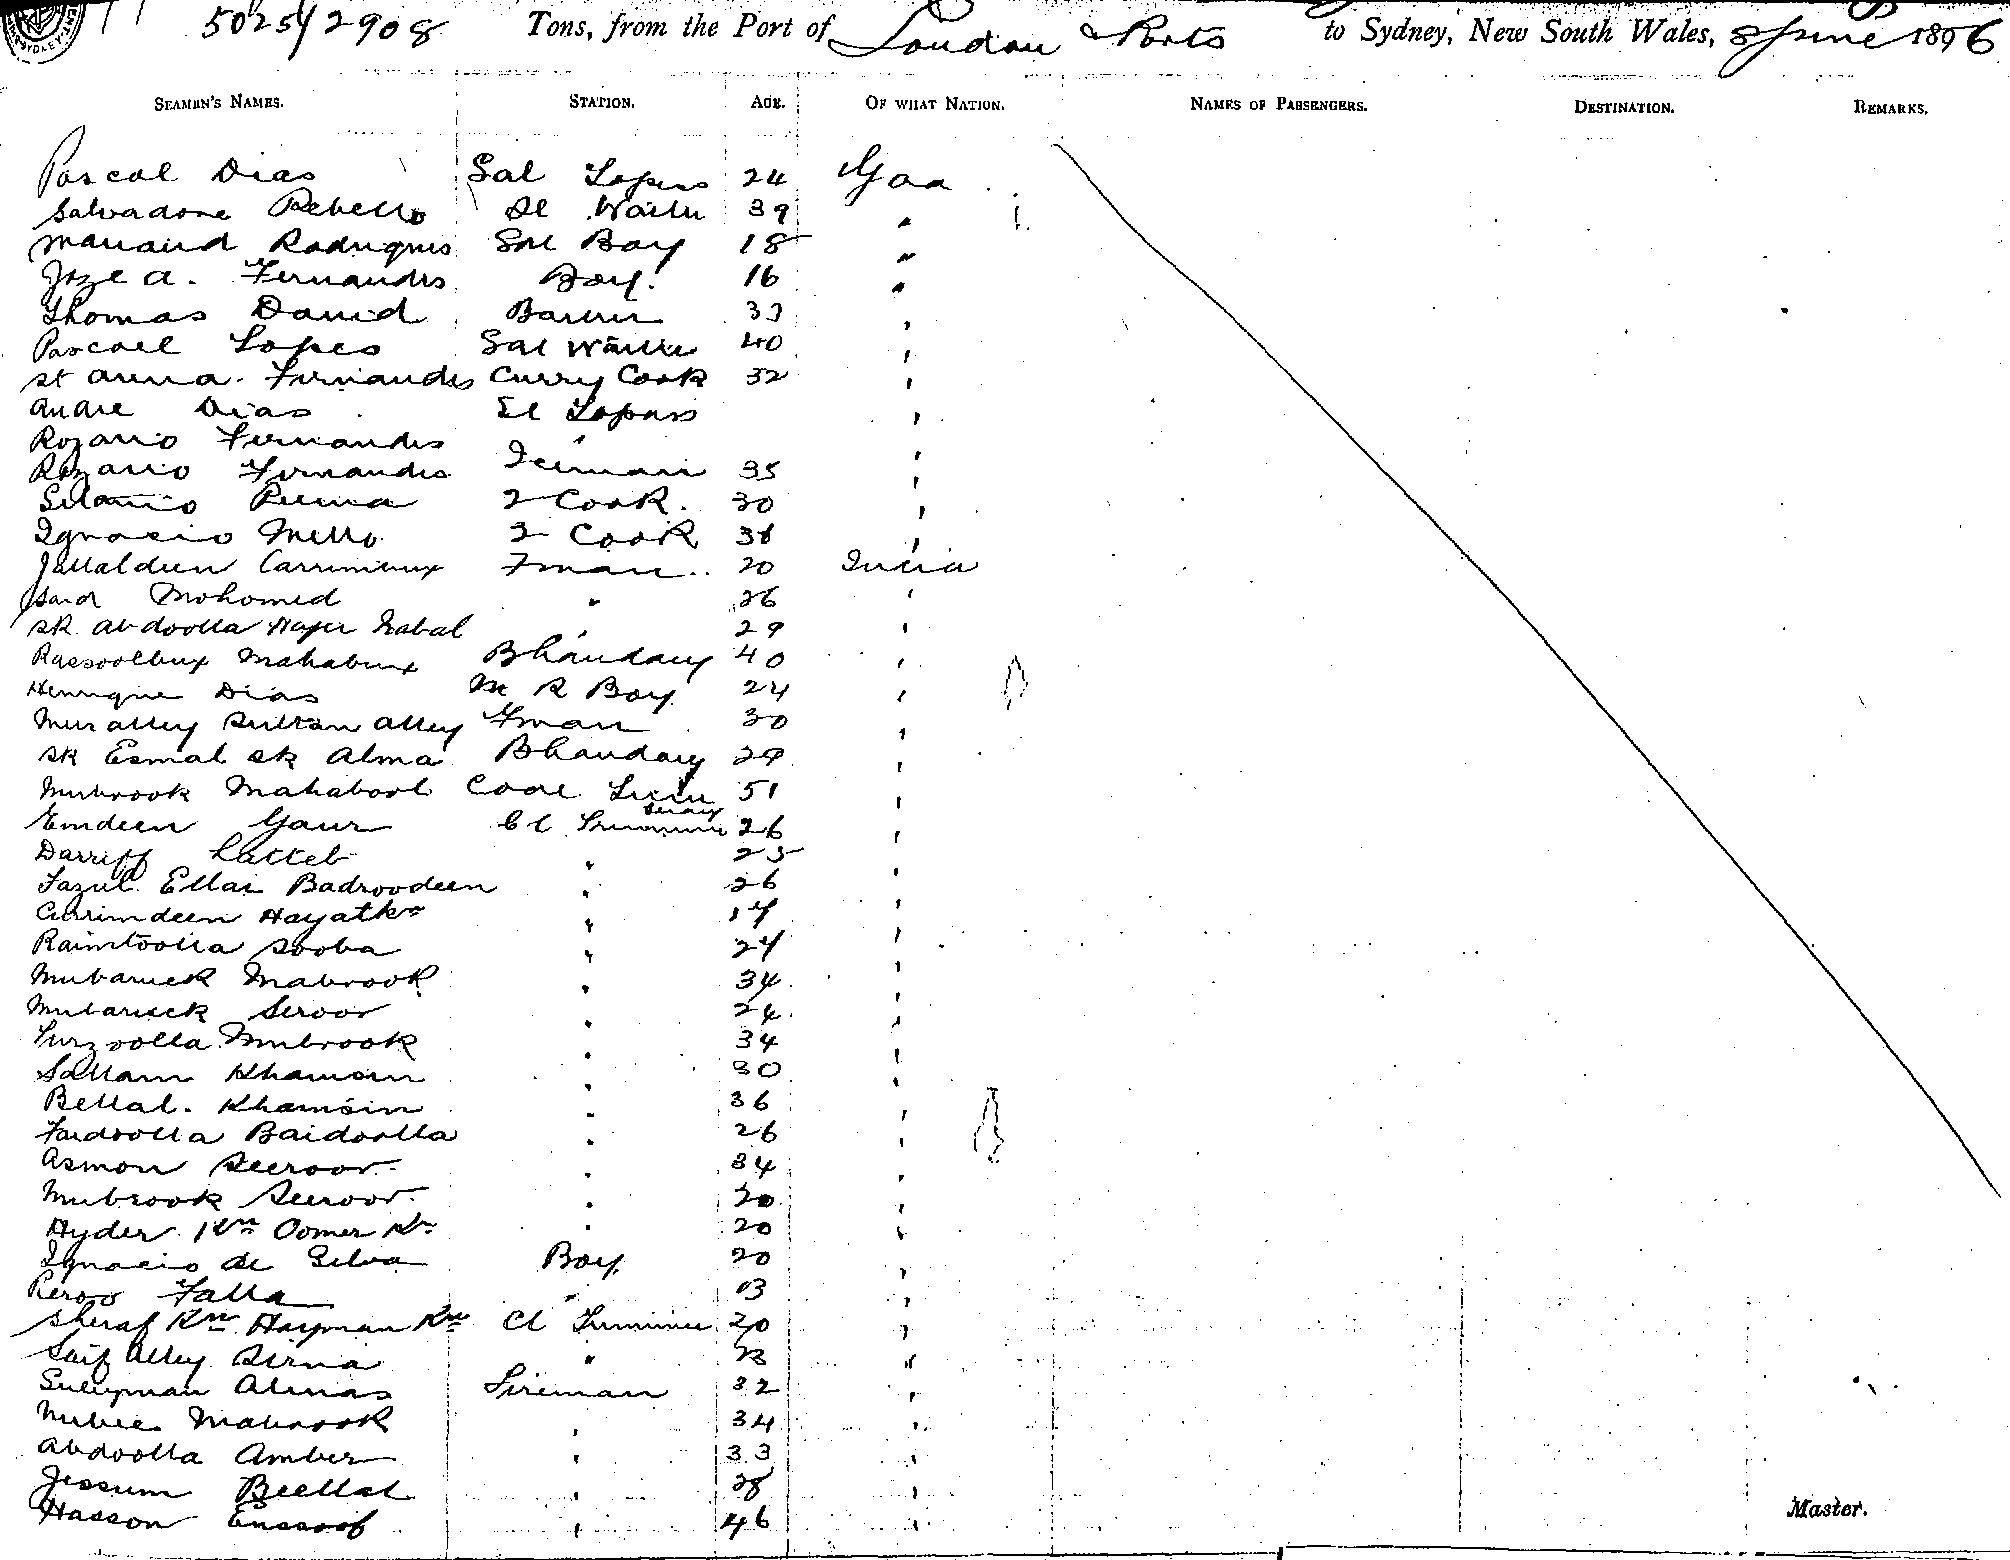 5025/2908 Tons, from the Port of London & Ports to Sydney, New South Wales, 8 June 1896
SEAMEN'S NAMES. STATION. AGE. OF WHAT NATION. NAMES OF PASSENGERS. DESTINATION. REMARKS.
Pascal Dias Sal Topass 24 Goa
Salvadore Rebello 39 "
Rodrigues Sal Boy 18 "
Joze A. Fernandes Boy. 16 "
Thomas David 33 "
Pascoal Lopes Sal Waiter 40 "
St Anna. Fernandes Curry Cook 32 "
Andre Dias Topass "
Rozario Fernandes " "
Rozario Fernandes 35 "
2 Cook. 30 "
Ignacio Mello 3 Cook 38 "
Fman. 20 India
Said Mohomed " 26 "
Sk Abdoolla " 29 "
Rassoolbux Mahabux Bhandary 40 "
Henrique Dias M R Boy 24 "
Mir Alley Sultan Alley Fman 30 "
Sk Esmal Sk Alma Bhandary 29 "
Mubrook Mahaboob Coal 51 "
Emdeen Gaur Cl Trimmer 26 "
Darriff " 25 "
Fazul Ellai Badroodeen " 26 "
Carrimdeen Hayatkn " "
Raimtoolla Sooba " 24 "
Mubarick Mabrook " 34 "
Mubarick Seroor " 24 "
Mubrook " 34 "
Sallam Khamsin " 30 "
Bellal. Khamsin " 36 "
Baidoolla " 26 "
Asmon Seeroor " 34 "
Mubrook Seeroor " 20 "
Hyder Kn Oomer Kn " 20 "
Ignacio de Silva Boy 20 "
Peroo Falla " 13 "
Sheraf Kn Kn Cl Trimmer 20 "
Saif Alley Sirna " 23 "
Suleyman Almas Fireman 32 "
Mabrook " 34 "
Abdoolla Amber " 33 "
Jessum Beellal " 28 "
Hasson " 46 "
Master.